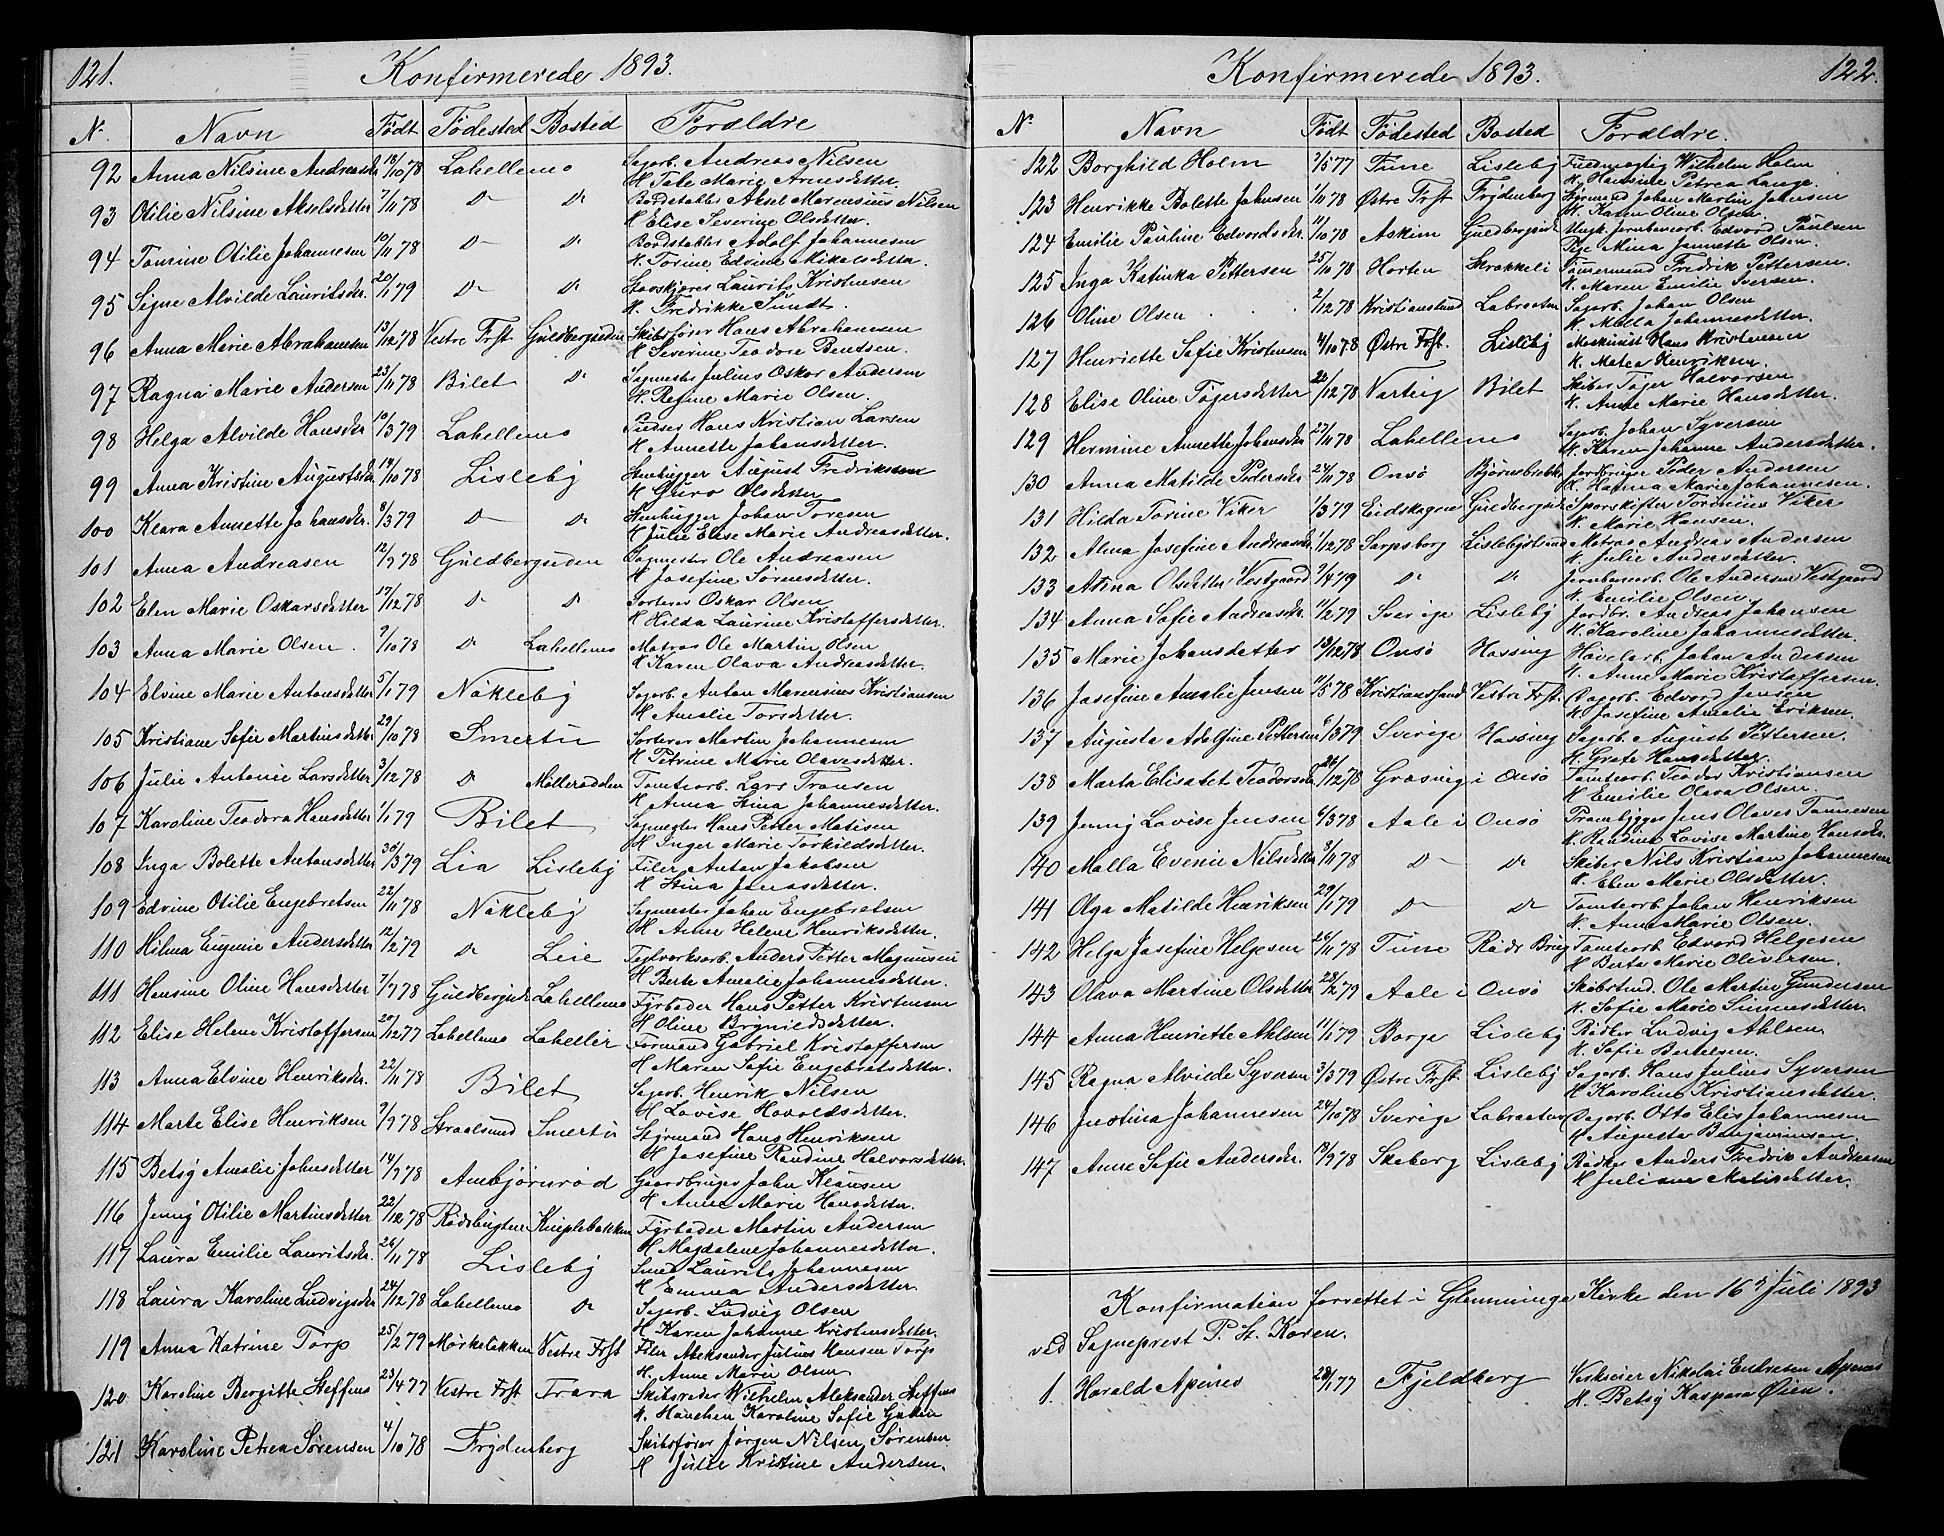 121. Konfirmerede 1893.
N. Navn Födt Födested Bosted Forældre
92 Anna Nilsine Andreasdtr 18/10 78 Lahellemo Sagarb. Andreas Nilsen
H. Marie Arnesdetter.
93 Otilie Nilsine Akselsdetter 7/11 78 D- D- Bordstabler Aksel Marensius Nilsen
H Elise Severine Olsdetter.
94 Tomine Otilie Johannesen 10/11 78 D- D- Bordstabler Adolf Johannesen
H. Torine Edvine Mikalsdetter.
95 Signe Alvilde Lauritsdtr. 20/1 79 D- D- Lauritz Kristensen
H. Fredrikke Sundt.
96 Anna Marie Abrahamsen 13/12 78 Vestre Frst Guldbergsiden Skibsfører Hans Abrahamsen
H Severine Teodore Bendsen.
97 Ragna Marie Andersen 23/11 78 Bilet D- Sagmester Julius Oskar Andersen
H. Marie Olsen.
98 Helga Alvilde Hansdtr 10/3 79 Lahellemo Hans Kristian Larsen
H Annette Johansdetter.
99 Anna Kristine Augustsdtr 14/10 78 Lisleby Stenhugger August Fredriksen
H Olsdetter
100 Klara Annette Johansdtr. 8/3 79 D- D- Stenhugger Johan Toresen
H Julie Elise Marie Andreasdetter.
101 Anna Andreasen 12/9 78 Guldbergsiden Sagmester Ole Andreasen
H Josefine Sörensdetter.
102 Elen Marie Oskarsdetter 17/12 78 D- D- Sorterer Oskar Olsen
H Hilda Laurine Kristoffersdetter.
103 Anna Marie Olsen. 9/10 78 D- Lahellemo Matros Ole Martin Olsen
H Karen Olava Andreasdetter.
104 Elvine Marie Antonsdetter 5/1 79 Nökleby Sagarb. Anton Marensius Kristiansen
H Amalie Torsdetter.
105 Kristiane Sofie Martinsdetter 29/10 78 Smertu Sorterer Martin Johannesen
H Petrine Marie Olavesdetter.
106 Julie Antonie Larsdetter 3/12 78 D- Mölleradalen Tomtearb. Lars Transen
H. Anna Stina Johannesdetter.
107 Karoline Teodora Hansdetter 1/1 79 Bilet Sagmester Hans Petter Matisen
H Inger Marie Torkildsdetter.
108 Inga Bolette Antonsdetter 30/3 79 Lia Lisleby Filer Anton Jakobsen
H Stina Jonasdetter.
109 Edvine Otilie Engebretsen 22/11 78 Nökleby Sagmester Johan Engebretsen
H Anne Helene Henriksdetter.
110 Hilma Eugenie Andersdetter 12/2 79 D- Leie Teglverksarb. Anders Petter Magnussen
H Berte Amalie Johannesdetter.
111 Hansine Oline Hansdetter 7/9 78 Guldbergsid Lahellemo Fyrböder Hans Petter Kristensen
H Oline Brynildsdetter.
112 Elise Helene Kristoffersen 20/12 77 Lahellemo Lahellir Formand Gabriel Kristoffersen
H Maren Sofie Engebretsdetter.
113 Anna Elvine Henriksdtr. 22/11 78 Bilet Sagarb. Henrik Nilsen
H Lovise Havoldsdetter.
114 Marte Elise Henriksen 9/9 78 Straalsund Smertu Styrmand Hans Henriksen
H Josefine Randine Halvorsdetter.
115 Betsy Amalie Johnsdetter 14/9 78 Ambjörnröd Gaardbruger John Klausen
H Anne Marie Hansdetter.
116 Jenny Otilie Martinsdetter 22/12 78 Rödsbugten Kniplebakken Fyrböder Martin Andersen
H Magdalene Johannesdetter.
117 Laura Emilie Lauritsdtr. 26/11 78 Lisleby Smed Laurits Johannesen
H Emma Andersdetter.
118 Laura Karoline Ludvigsdtr 24/12 78 Lahellemo D- Sagarb. Ludvig Olsen
H Karen Johanne Kristensdetter.
119 Anna Katrine Torp 25/2 79 Mörkebakken Vestre Frst Filer Aleksander Julius Hansen Torp
H. Anne Marie Olsen
120 Karoline Bergitte Steffens 23/4 77 Vestre Frst Trara Skibsreder Wilhelm Aleksander Steffens
H. Hanchen Karoline Sofie
121 Karoline Petrea Sörensen 4/10 78 Frydenberg Skibsfører Jørgen Nilsen Sørensen
H Julie Kristine Andersen.
Konfirmerede 1893. 122.
N. Navn Födt Födested Bosted Forældre.
122 Borghild Holm 2/5 77 Tune Lisleby Fuldmægtig Wilhelm Holm
H. Hansine Petrea Lange.
123 Henrikke Bolette Johnsen 1/11 78 Østre Frst Frydenberg Styrmand Johan Martin Johnsen
H. Karen Oline Olsen.
124 Emilie Pauline Edvardsdtr. 11/10 78 Askim Guldbergsid Ungk. Jernbanearb. Edvard Paulsen
Pige Mina Jannette Olsen.
125 Inga Katinka Pettersen 25/10 78 Horten Krakkeli Tömmermand Fredrik Pettersen.
H. Maren Emilie Iversen.
126 Oline Olsen 2/12 78 Kristiansund Labraaten Sagarb. Johan Olsen
H Malla Johannesdetter.
127 Henriette Sofie Kristensen 4/10 78 Østre Frst. Lisleby Maskinist Hans Kristensen
H. Matea Henriksen.
128 Elise Oline Töjersdetter 22/12 78 Varteig Bilet Skiber Töjer Halvorsen
H. Anne Marie Hansdetter.
129 Hermine Annette Johansdtr 23/11 78 Lahellemo Sagarb. Johan Syversen
H. Karen Johanne Andersdetter.
130 Anna Matilde Pedersdtr 24/11 78 Onsö Björnebrekke Jordbruger Peder Andersen
H. Hanna Marie Johannesen.
131 Hilda Torine Viker 1/3 79 Eidskogen Guldbergsid Sporskifter Torinius Viker
H. Marie Hansen.
132 Alma Josefine Andreasdtr 1/12 78 Sarpsborg Lislebystrand Matros Andreas Andersen
H. Julie Andersdetter.
133 Anna Olsdetter Vestgaard 9/4 79 D- D- Jernbanearb. Ole Andersen Vestgaard
H. Emilie Olsen.
134 Anna Sofie Andreasdtr. 11/2 79 Sverige Lisleby Jordbr. Andreas Johansen
H. Karoline Johannesdetter.
135 Marie Johansdetter 10/12 78 Onsö Hassing Hövelarb. Johan Andersen
H. Anne Marie Kristoffersen.
136 Josefine Amalie Jensen 11/5 78 Kristianssand Vestre Frst. Dagarb. Edvard Jensen
H. Josefine Amalie Eriksen.
137 Augusta Adolfine Pettersen 6/3 79 Sverige Hassing Sagarb. August Pettersen.
H. Grete Hansdetter.
138 Marta Elisabet Teodorsdtr 26/12 78 Græsvig i Onsö Tomtearb. Teodor Kristiansen
H Emilie Olava Olsen.
139 Jenny Lovise Jensen 4/3 78 Aale i Onsö Prambygger Jens Olaves Tannesen
H. Randine Lovise Martine Hansdtr.
140 Malla Evenie Nilsdetter 3/11 78 D- D- Skiber Nils Kristian Johannesen
H. Elen Marie Olsdetter.
141 Olga Matilde Henriksen 29/1 79 D- D- Tomtearb. Johan Henriksen
H. Anna Marie Olsen.
142 Helga Josefine Helgesen 26/11 78 Tune Röds Brug Tomtearb. Edvard Helgesen
H Berta Marie Oliversen.
143 Olava Martine Olsdetter 28/2 79 Aale i Onsö Ole Martin Gundersen
H. Sofie Marie Simensdetter.
144 Anna Henriette Ahlsen 11/1 79 Borge Lisleby Bödker Ludvig Ahlsen.
H. Sofie Bertelsen.
145 Ragna Alvilde Syversen 3/3 79 Østre Frst Lisleby Sagarb. Hans Julius Syversen
H Karoline Kristiansdetter.
146 Justina Johannesen 24/10 78 Sverige Labraaten Dagarb. Otto Elis Johannesen
H Augusta Benjaminsen.
147 Anne Sofie Andersdtr. 19/9 78 Skeberg Lisleby Bödker Anders Fredrik Andreasen
H Juliane Matisdetter.
Konfirmation forrettet i Glemminge Kirke den 16de Juli 1893
ved Sogneprest P. St. Koren.
1. Harald Apenes 28/1 77 Fjeldberg Verkseier Nikolai Endresen Apenes
H. Betsy Kaspara Øien.